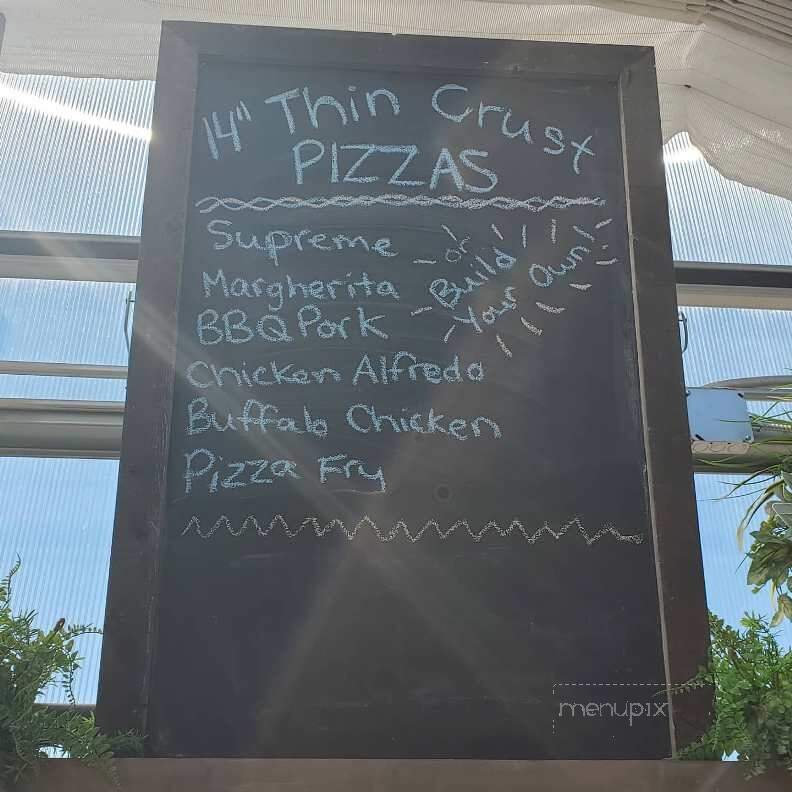 14" Thin Crust
PIZZAS
Supreme
Margherita
BBQ Pork
Chicken Alfredo
Buffalo Chicken
Pizza Fry
or
Build
Your Own
menupix